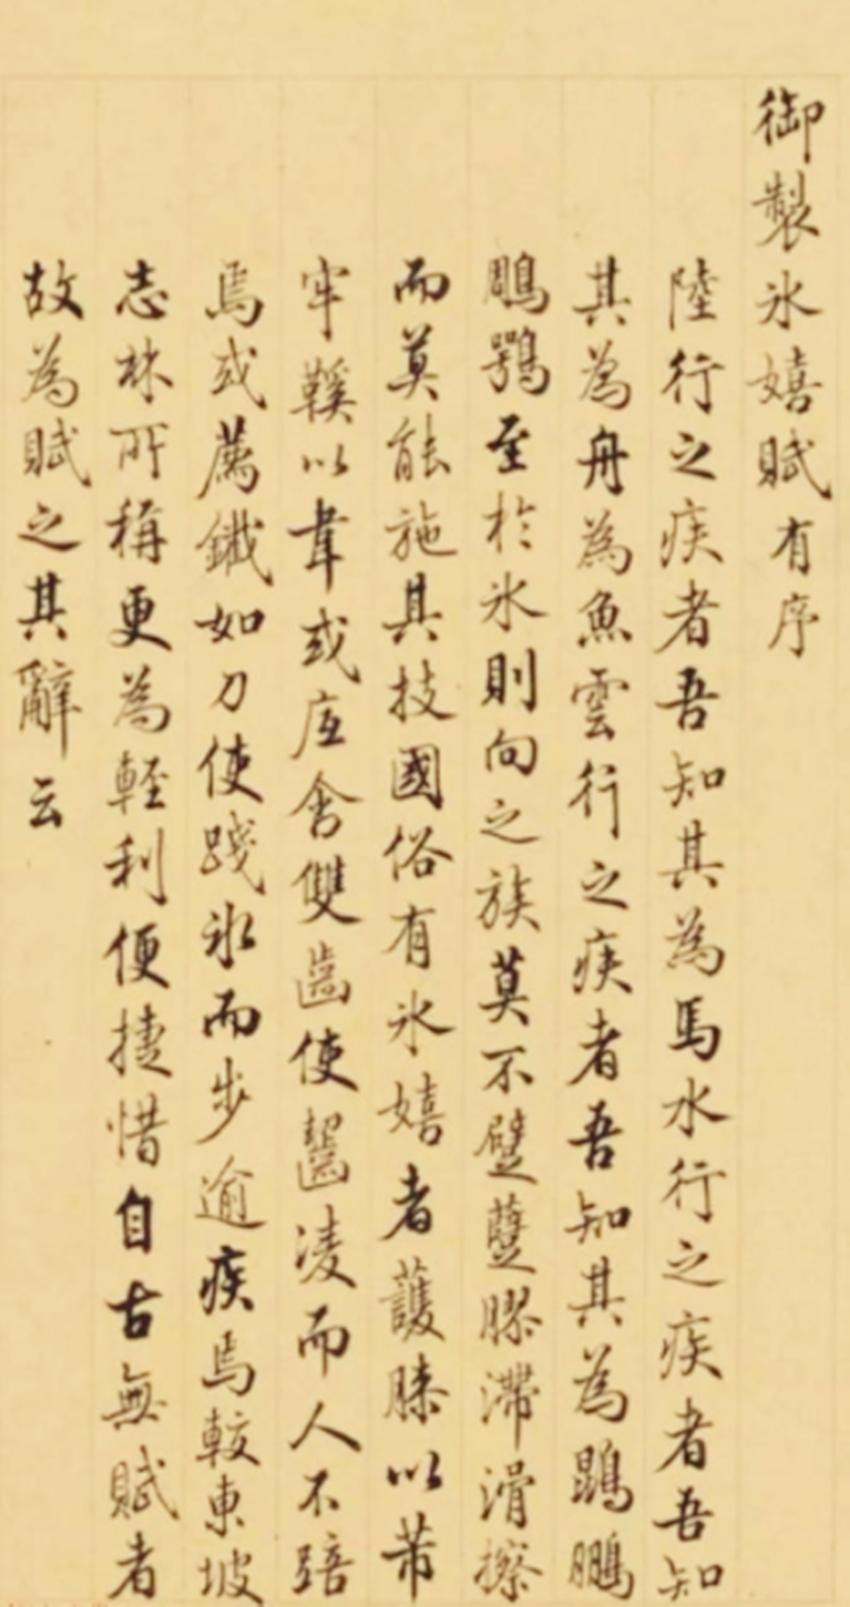 御製冰嬉賦有序
陸行之疾者吾知其為馬水行之疾者吾知
其為舟為魚雲行之疾者吾知其為鵾鵬
鵰鶚至於冰則向之族莫不躄躠膠滯滑擦
而莫能施其技國俗有冰嬉者護膝以芾
牢鞵以韋或底含雙齒使齧凌而人不踣
焉或薦鐵如刀使踐冰而步逾疾焉較東坡
志林所稱更為輕利便捷惜自古無賦者
故為賦之其辭云